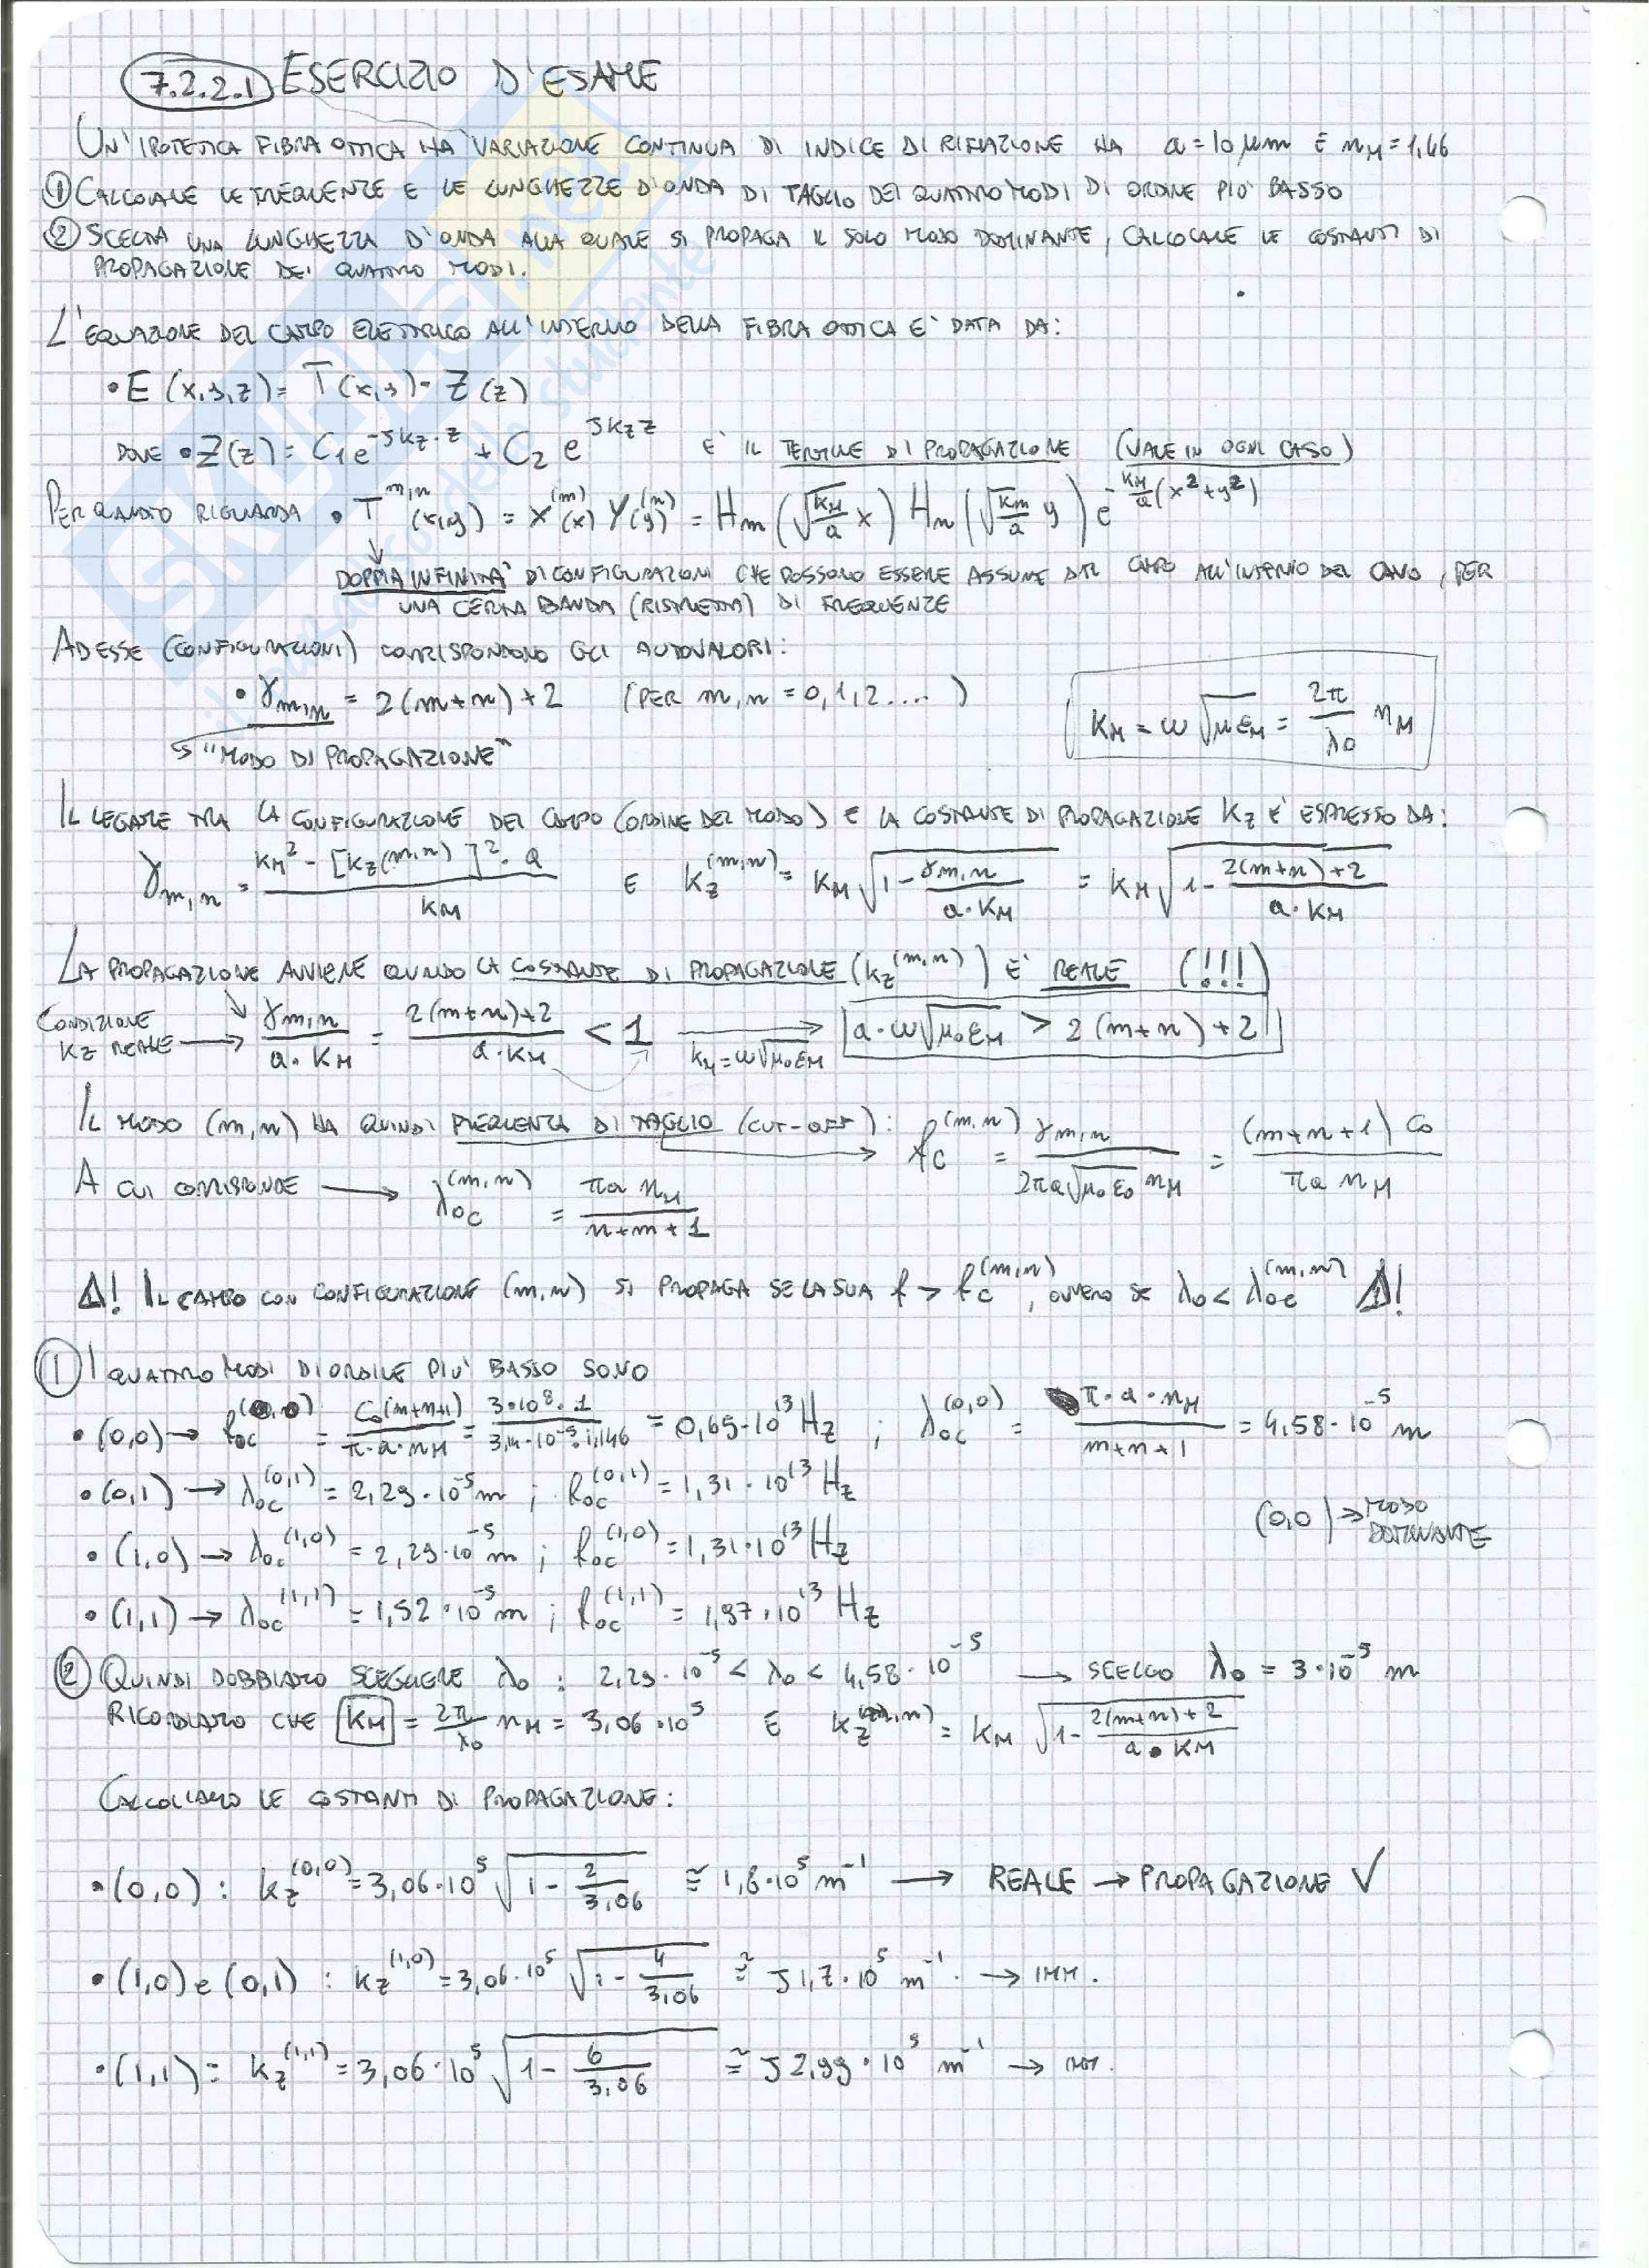 7.2.2.1 ESERCIZIO D'ESAME
UN'IPOTETICA FIBRA OTTICA HA VARIAZIONE CONTINUA DI INDICE DI RIFRAZIONE HA a = 10 μm E n_M = 1,46
① CALCOLARE LE FREQUENZE E LE LUNGHEZZE D'ONDA DI TAGLIO DEI QUATTRO MODI DI ORDINE PIÙ BASSO
② SCELTA UNA LUNGHEZZA D'ONDA ALLA QUALE SI PROPAGA IL SOLO MODO DOMINANTE, CALCOLARE LE COSTANTI DI
PROPAGAZIONE DEI QUATTRO MODI.
L'EQUAZIONE DEL CAMPO ELETTRICO ALL'INTERNO DELLA FIBRA OTTICA E' DATA DA:
• E (x,y,z) = T(x,y) · Z(z)
DOVE • Z(z) = C_1 e^{-Jk_z·z} + C_2 e^{Jk_z z} E' IL TERMINE DI PROPAGAZIONE (VALE IN OGNI CASO)
PER QUANTO RIGUARDA • T^{m,n}(x,y) = X^{(m)}(x) Y^{(n)}(y) = H_m(√(k_M/a) x) H_n(√(k_m/a) y) e^{-k_M/a (x²+y²)}
DOPPIA INFINITA' DI CONFIGURAZIONI CHE POSSONO ESSERE ASSUNTE DAL CAMPO ALL'INTERNO DEL CAVO, PER
UNA CERTA BANDA (RISTRETTA) DI FREQUENZE
AD ESSE (CONFIGURAZIONI) CORRISPONDONO GLI AUTOVALORI:
• γ_{m,n} = 2(m+n)+2 (PER m,n = 0,1,2....) k_M = ω√(με_M) = 2π/λ0 n_M
↳ "MODO DI PROPAGAZIONE"
IL LEGAME TRA LA CONFIGURAZIONE DEL CAMPO (ORDINE DEL MODO) E LA COSTANTE DI PROPAGAZIONE k_z E' ESPRESSO DA:
γ_{m,n} = (k_M² - [k_z^{(m,n)}]² · a)/k_M E k_z^{(m,n)} = k_M √(1 - γ_{m,n}/(a·k_M)) = k_M √(1 - (2(m+n)+2)/(a·k_M))
LA PROPAGAZIONE AVVIENE QUANDO LA COSTANTE DI PROPAGAZIONE (k_z^{(m,n)}) E' REALE (!!!)
CONDIZIONE k_z REALE → γ_{m,n}/(a·k_M) = (2(m+n)+2)/(a·k_M) < 1 → k_M=ω√(μ_0ε_M) a·ω√(μ_0ε_M) > 2(m+n)+2
IL MODO (m,n) HA QUINDI FREQUENZA DI TAGLIO (CUT-OFF): → f_c^{(m,n)} = γ_{m,n}/(2πa√(μ_0ε_0) n_M) = (m+n+1) c_0/(πa n_M)
A CUI CORRISPONDE → λ_{0c}^{(m,n)} = πa n_M/(n+m+1)
⚠! IL CAMPO CON CONFIGURAZIONE (m,n) SI PROPAGA SE LA SUA f > f_c^{(m,n)}, OVVERO SE λ0 < λ_{0c}^{(m,n)} ⚠!
① I QUATTRO MODI DI ORDINE PIU' BASSO SONO
• (0,0) → f_{0c}^{(0,0)} = c_0(m+n+1)/(π·a·n_M) = 3·10^8·1/(3,14·10^{-5}·1,46) = 0,65·10^{13} Hz ; λ_{0c}^{(0,0)} = π·a·n_M/(m+n+1) = 4,58·10^{-5} m
• (0,1) → λ_{0c}^{(0,1)} = 2,29·10^{-5} m ; f_{0c}^{(0,1)} = 1,31·10^{13} Hz
(0,0) → MODO DOMINANTE
• (1,0) → λ_{0c}^{(1,0)} = 2,29·10^{-5} m ; f_{0c}^{(1,0)} = 1,31·10^{13} Hz
• (1,1) → λ_{0c}^{(1,1)} = 1,52·10^{-5} m ; f_{0c}^{(1,1)} = 1,97·10^{13} Hz
② QUINDI DOBBIAMO SCEGLIERE λ0 : 2,29·10^{-5} < λ0 < 4,58·10^{-5} → SCELGO λ0 = 3·10^{-5} m
RICORDIAMO CHE k_M = 2π/λ0 n_M = 3,06·10^5 E k_z^{(m,n)} = k_M √(1 - (2(m+n)+2)/(a·k_M))
CALCOLIAMO LE COSTANTI DI PROPAGAZIONE:
• (0,0) : k_z^{(0,0)} = 3,06·10^5 √(1 - 2/3,06) ≅ 1,8·10^5 m^{-1} → REALE → PROPAGAZIONE √
• (1,0) e (0,1) : k_z^{(1,0)} = 3,06·10^5 √(1 - 4/3,06) ≅ J1,7·10^5 m^{-1} → IMM.
• (1,1) : k_z^{(1,1)} = 3,06·10^5 √(1 - 6/3,06) ≅ J2,99·10^5 m^{-1} → IMM.